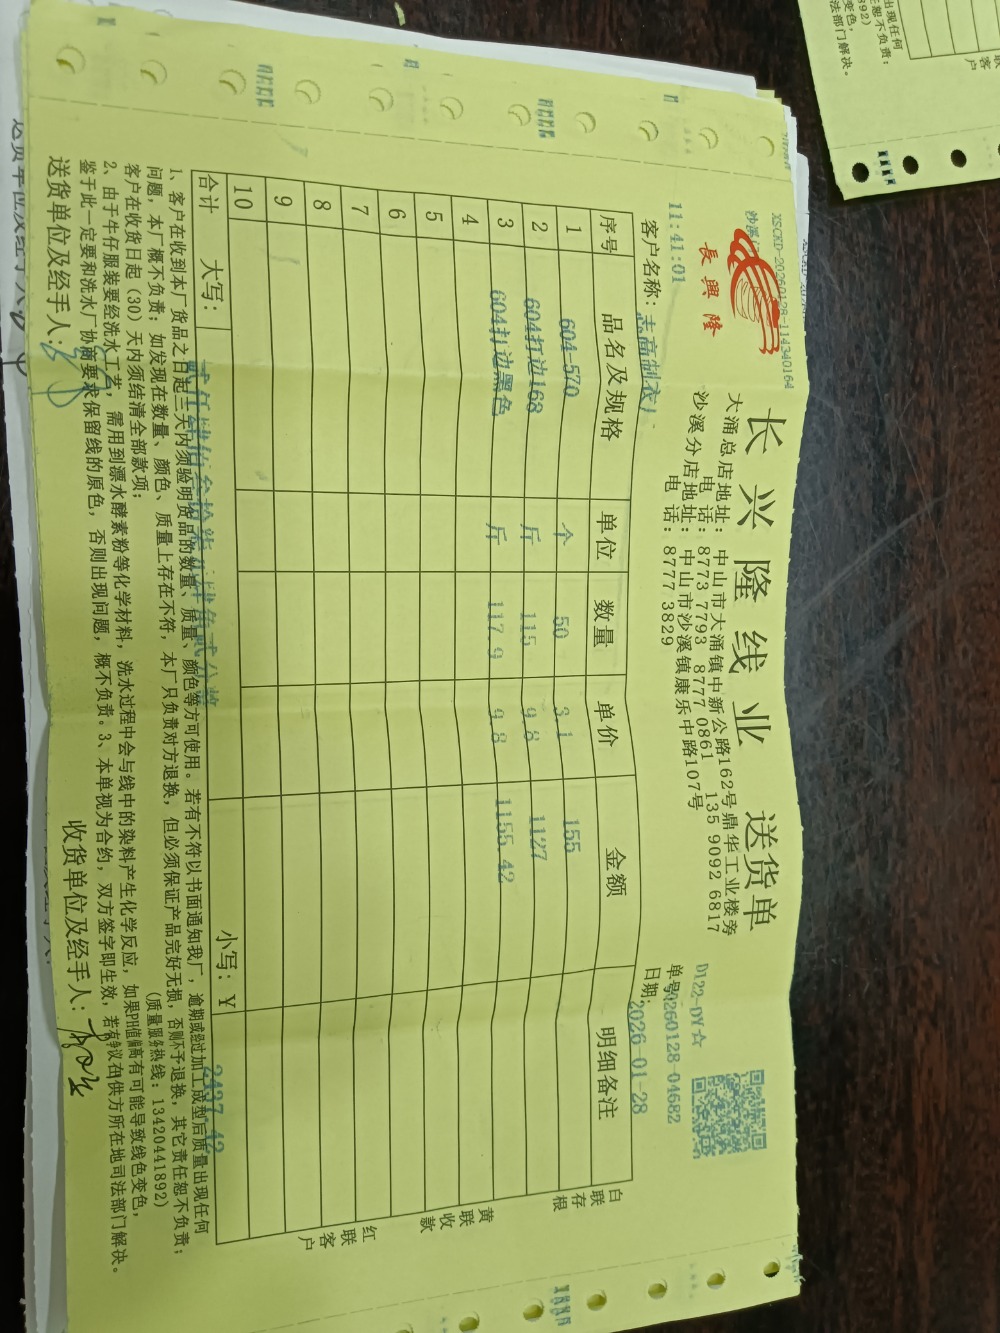 XSCKD-20260128-114340164
長興隆
长兴隆线业 送货单
大涌总店地址：中山市大涌镇中新公路162号鼎华工业楼旁
电话：8773 7793 8777 0861 135 9092 6817
沙溪分店地址：中山市沙溪镇康乐中路107号
电话：8777 3829
D122-DY☆
11:41:01
单号：20260128-04682
客户名称：志高制衣厂
日期：2026-01-28
序号 品名及规格 单位 数量 单价 金额 明细备注
1 604-570 个 50 3.1 155
2 604打边168 斤 115 9.8 1127
3 604打边黑色 斤 117.9 9.8 1155.42
4
5
6
7
8
9
10
合计 大写：贰仟肆佰叁拾柒元肆角贰分 小写：￥2437.42
白联存根
黄联收款
红联客户
1、客户在收到本厂货品之日起三天内须验明货品的数量、质量、颜色等方可使用。若有不符以书面通知我厂，逾期或经过加工成型后质量出现任何
问题，本厂概不负责；如发现在数量、颜色、质量上存在不符，本厂只负责对方退换，但必须保证产品完好无损，否则不予退换，其它责任恕不负责；
客户在收货日起（30）天内须结清全部款项；
（质量服务热线：13420441892）
2、由于牛仔服装要经洗水工艺，需用到漂水酵素粉等化学材料，洗水过程中会与线中的染料产生化学反应，如果PH值偏高有可能导致线色变色，
鉴于此一定要和洗水厂协商要求保留线的原色，否则出现问题，概不负责。3、本单视为合约，双方签字即生效，若有争议在供方所在地司法部门解决。
送货单位及经手人：
收货单位及经手人：
出现任何
恕不负责；
892)
变色，
法部门解决。
联客户